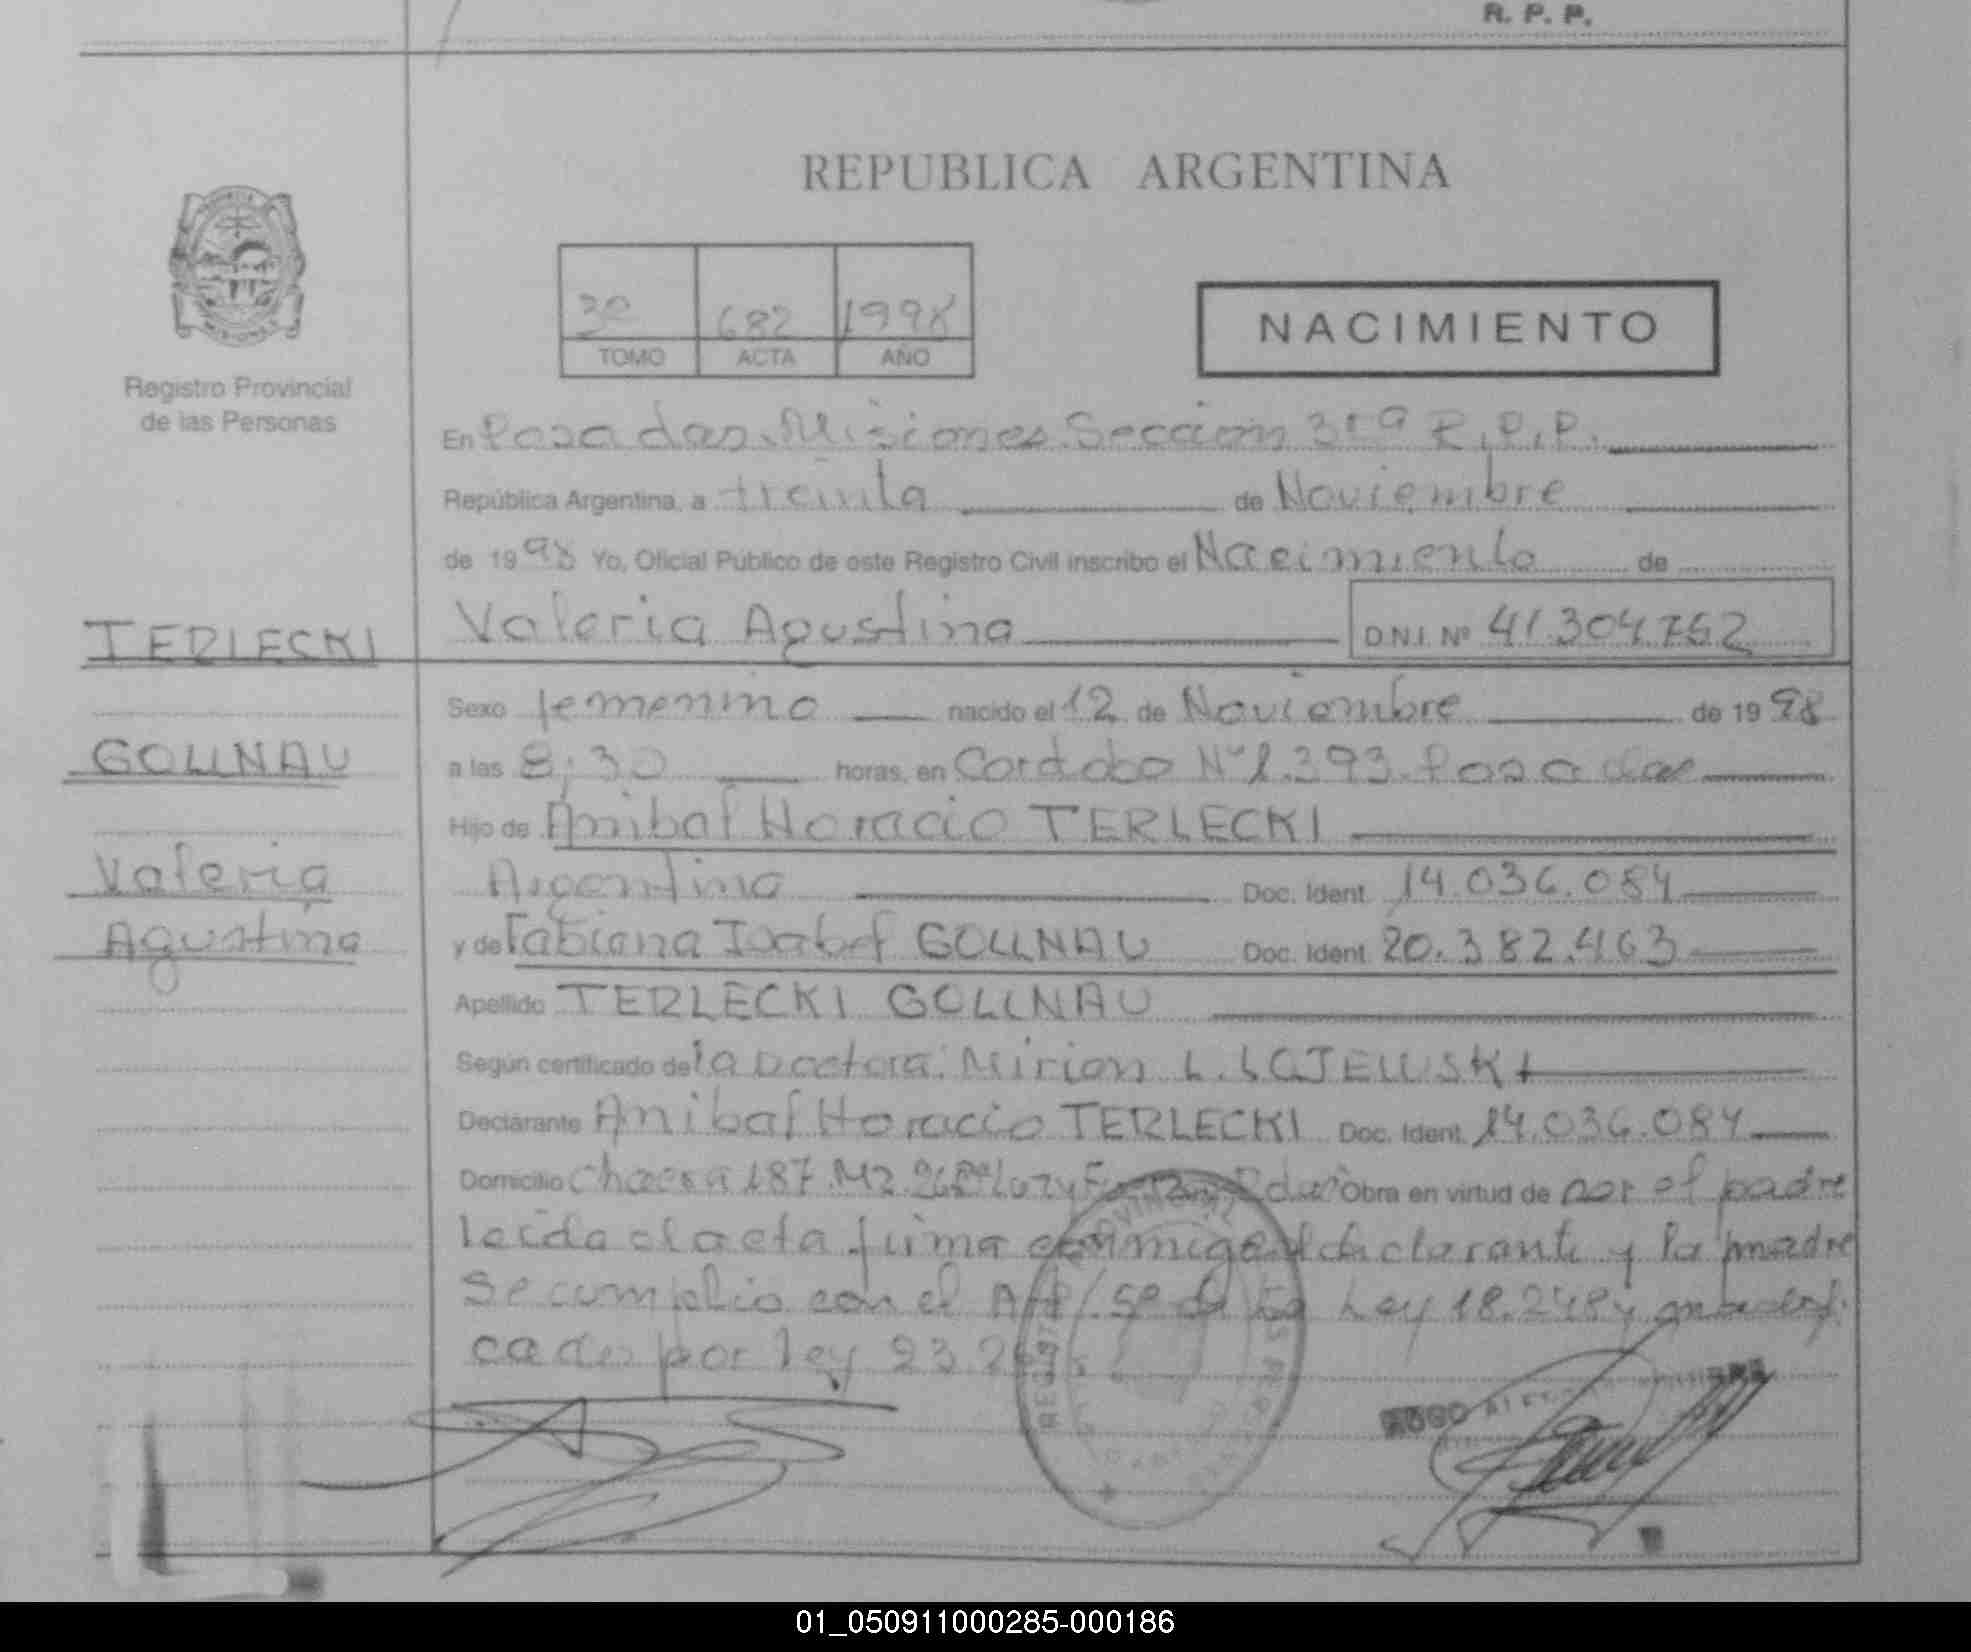 R. P. P.
REPUBLICA ARGENTINA
682 1998
TOMO ACTA AÑO
NACIMIENTO
Registro Provincial
de las Personas
En Posadas. Misiones. Sección 3ra R.P.P.
República Argentina, a treinta de Noviembre
de 1998 Yo, Oficial Público de este Registro Civil inscribo el Nacimiento de
Valeria Agustina D.N.I. Nº 41.304.752
TERLECKI
Sexo femenino nacido el 12 de Noviembre de 1998
GOLLNAU
a las 8:30 horas, en Cordoba Nº 1.393. Posadas
Hijo de Anibal Horacio TERLECKI
Valeria
Argentina Doc. Ident. 14.036.084
Agustina
y de Fabiana Isabel GOLLNAU Doc. Ident. 20.382.463
Apellido TERLECKI GOLLNAU
Según certificado de la Doctora: Mirian L. LOJEWSKI
Declarante Anibal Horacio TERLECKI Doc. Ident. 14.036.084
Domicilio Chacra 187. Mz. Luz y Obra en virtud de ser el padre
leida el acta firma conmigo el declarante y la madre
Se cumplio con el Art/ 5º de la Ley 18.248 y modifi
cados por ley 23.2
REGISTRO PROVINCIAL
01_050911000285-000186